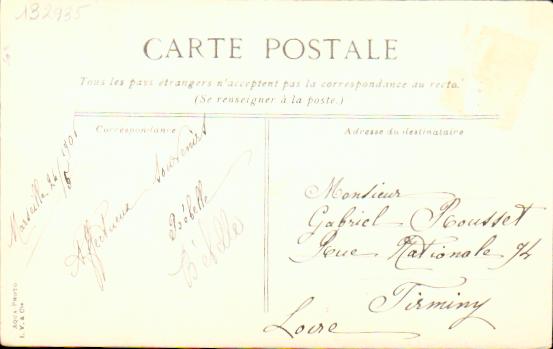 132935
CARTE POSTALE
Tous les pays étrangers n'acceptent pas la correspondance au recto.
(Se renseigner à la poste.)
Correspondance
Adresse du destinataire
Marseille 26
Affectueux Souvenirs
Bébelle
Bébelle
Monsieur
Gabriel Rousset
Rue Nationale 74
Firminy
Loire
AQUA PHOTO
L. V. & Cie